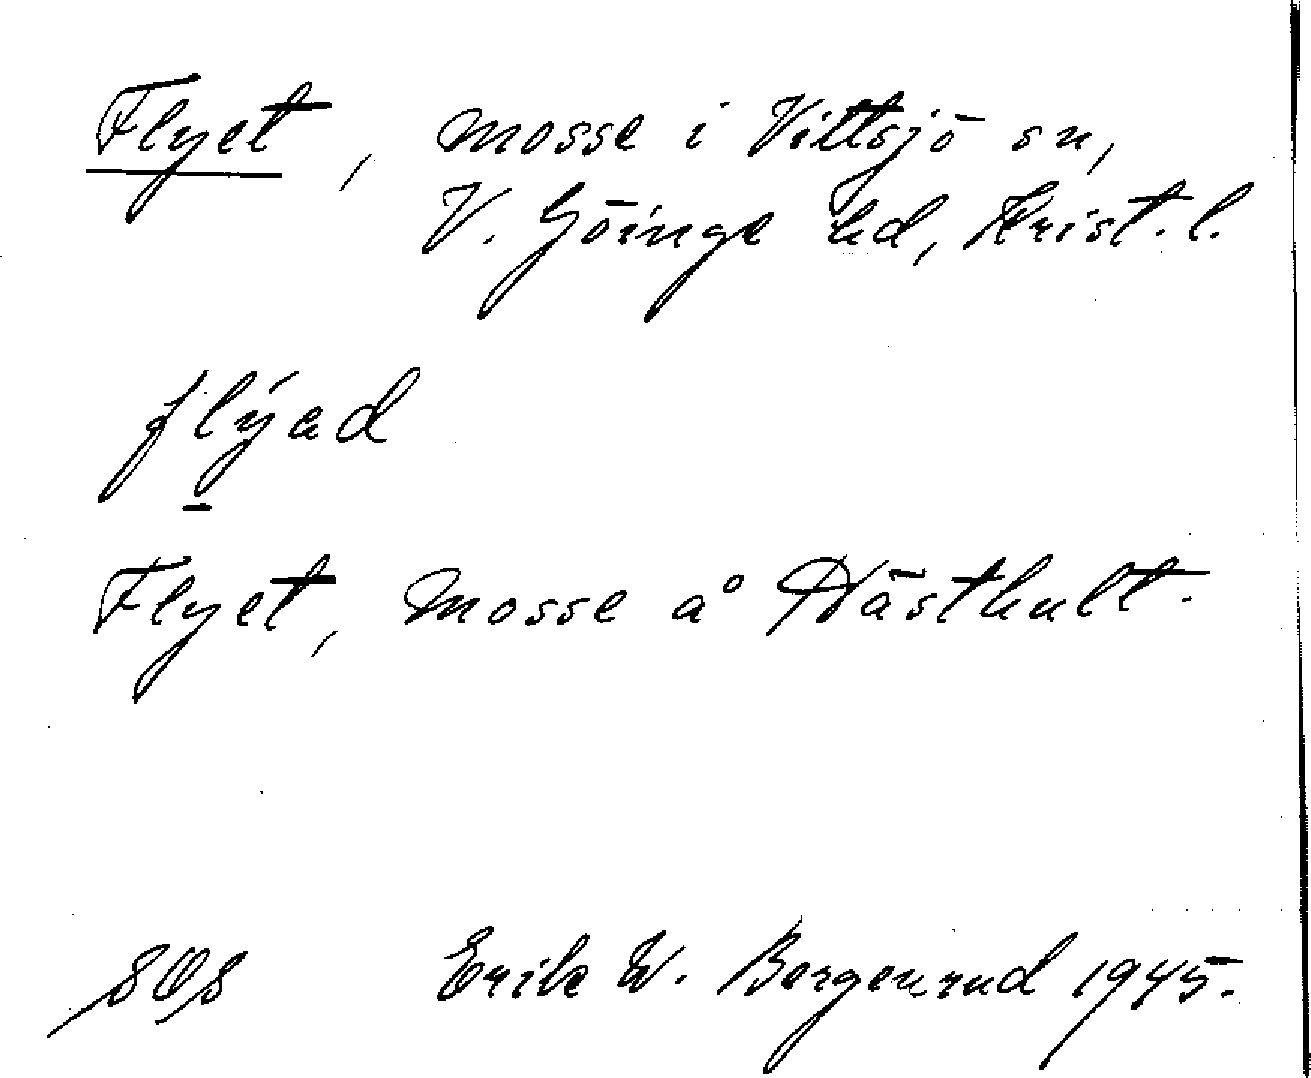 Flyet, mosse i Vittsjö sn,
V. Göinge hd, Krist. l.
flýad
Flyet, mosse å Hästhult.
Erik W. Bergenrud 1945.